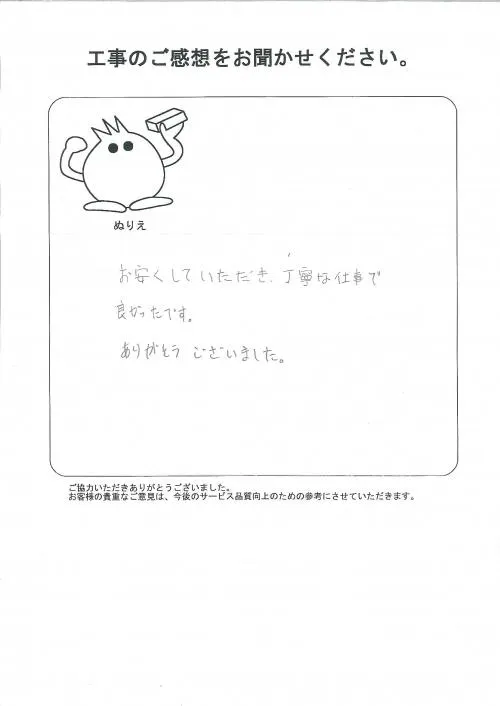 工事のご感想をお聞かせください。
ぬりえ
お安くしていただき、丁寧な仕事で
良かったです。
ありがとうございました。
ご協力いただきありがとうございました。
お客様の貴重なご意見は、今後のサービス品質向上のための参考にさせていただきます。